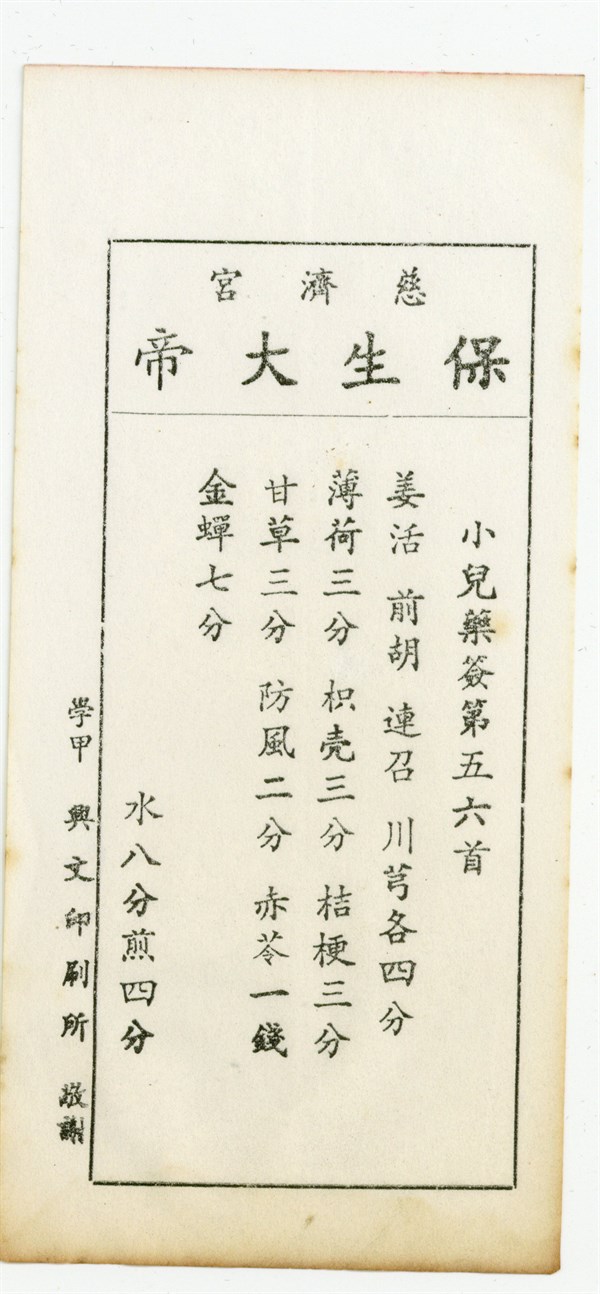 慈濟宮
保生大帝
小兒藥簽第五六首
姜活 前胡 連召 川芎各四分
薄荷三分 枳壳三分 桔梗三分
甘草三分 防風二分 赤苓一錢
金蟬七分
水八分煎四分
學甲 興文印刷所 敬謝